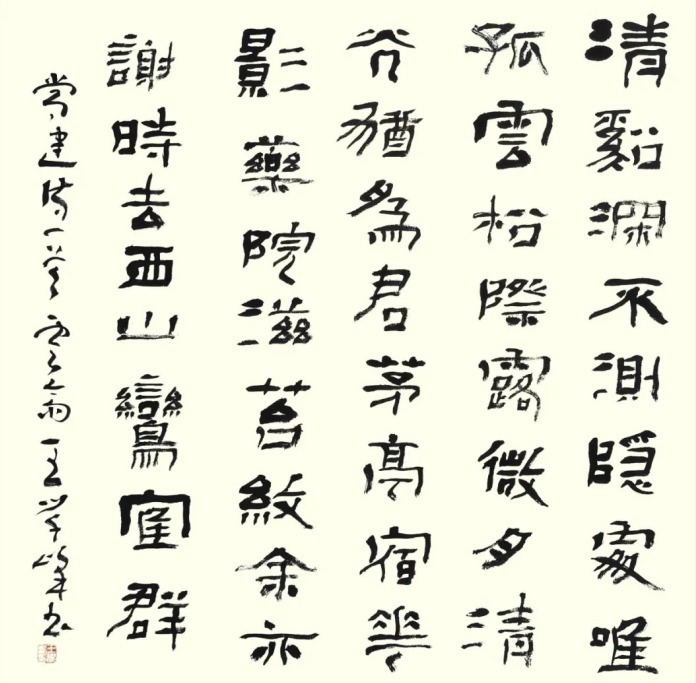 清谿深不測隱處唯
孤雲松際露微月清
光猶為君茅亭宿花
影藥院滋苔紋余亦
謝時去西山鸞寉群
常建诗一首 王学书